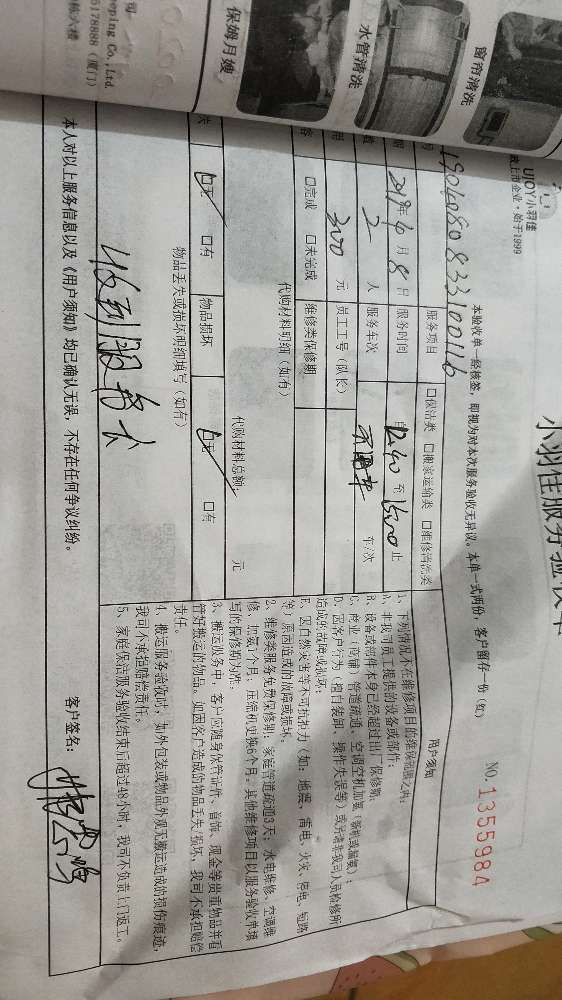 司
eeping Co., Ltd.
5178888（厦门）
栋大楼
保姆月嫂
水管清洗
窗帘清洗
UJOY小羽佳
上市企业·始于1999
小羽佳服务验收单
NO. 1355984
本验收单一经核签，即视为对本次服务验收无异议。本单一式两份，客户留存一份（红）
服务项目 □保洁类 □搬家运输类 □维修清洗类
2019年4月8日 服务时间 自 12:40 至 15:00 止
2 人 服务车次 车/次
300 元 员工工号（队长）
□完成 □未完成 维修类保修期
代购材料明细（如有）
代购材料总额： 元
□无 □有 物品损坏 □无 □有
物品丢失或损坏明细填写（如有）
收到服务卡
本人对以上服务信息以及《用户须知》均已确认无误，不存在任何争议纠纷。
用户须知
1、下列情况不在维修项目的维保范围之内：
A、非我司员工提供的设备或部件；
B、设备或部件本身已经超过出厂保修期；
C、商业（店铺）管道疏通、空调空机加氟（新机或漏氟）；
D、因客户行为（擅自装卸、操作失误等）或另请非我司人员检修所
造成的故障或损坏；
E、因自然灾害等不可抗拒力（如：地震、雷电、火灾、停电、短路
等）原因造成的故障或损坏。
2、维修类服务免费保修期：家庭管道疏通3天；水电维修、空调维
修、加氟1个月，压缩机更换6个月。其他维修项目以服务验收单填
写的保修期为准。
3、搬运服务中，客户应随身保管证件、首饰、现金等贵重物品并看
管好搬运的物品。如因客户造成的物品丢失/损坏，我司不承担赔偿
责任。
4、搬运服务验收时，如外包装或物品外观无搬运造成的损伤痕迹，
我司不承担赔偿责任。
5、家庭保洁服务验收结束后超过48小时，我司不负责上门返工。
客户签名：